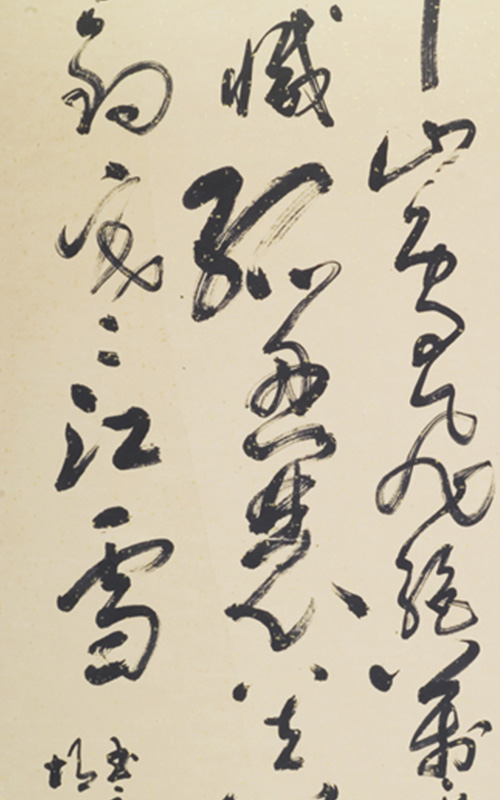 山鳥飛絕萬
滅孤舟蓑笠
釣寒江雪